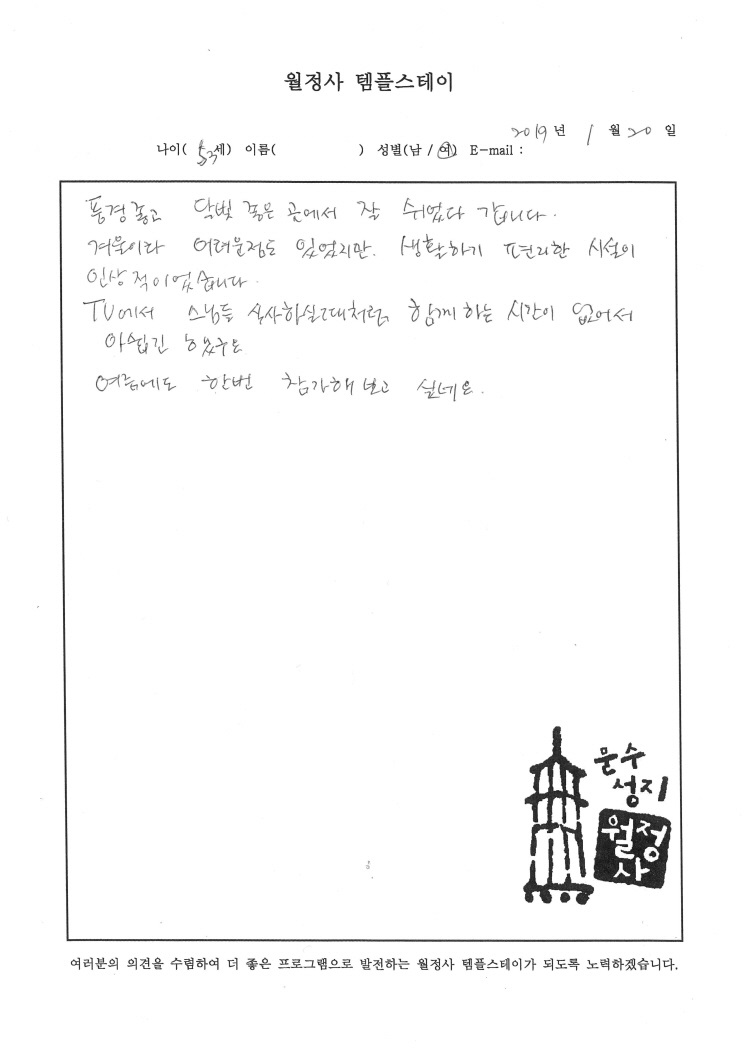 월정사 템플스테이
2019년 1월 20일
나이( 53세) 이름( ) 성별(남 / 여) E-mail :
풍경좋고 달빛 좋은 곳에서 잘 쉬었다 갑니다.
겨울이라 어려운점도 있었지만. 생활하기 편리한 시설이
인상적이었습니다.
TV에서 스님들 식사하실때처럼, 함께 하는 시간이 없어서
아쉽긴 했구요
여름에도 한번 참가해보고 싶네요.
문수
성지
월정
사
여러분의 의견을 수렴하여 더 좋은 프로그램으로 발전하는 월정사 템플스테이가 되도록 노력하겠습니다.